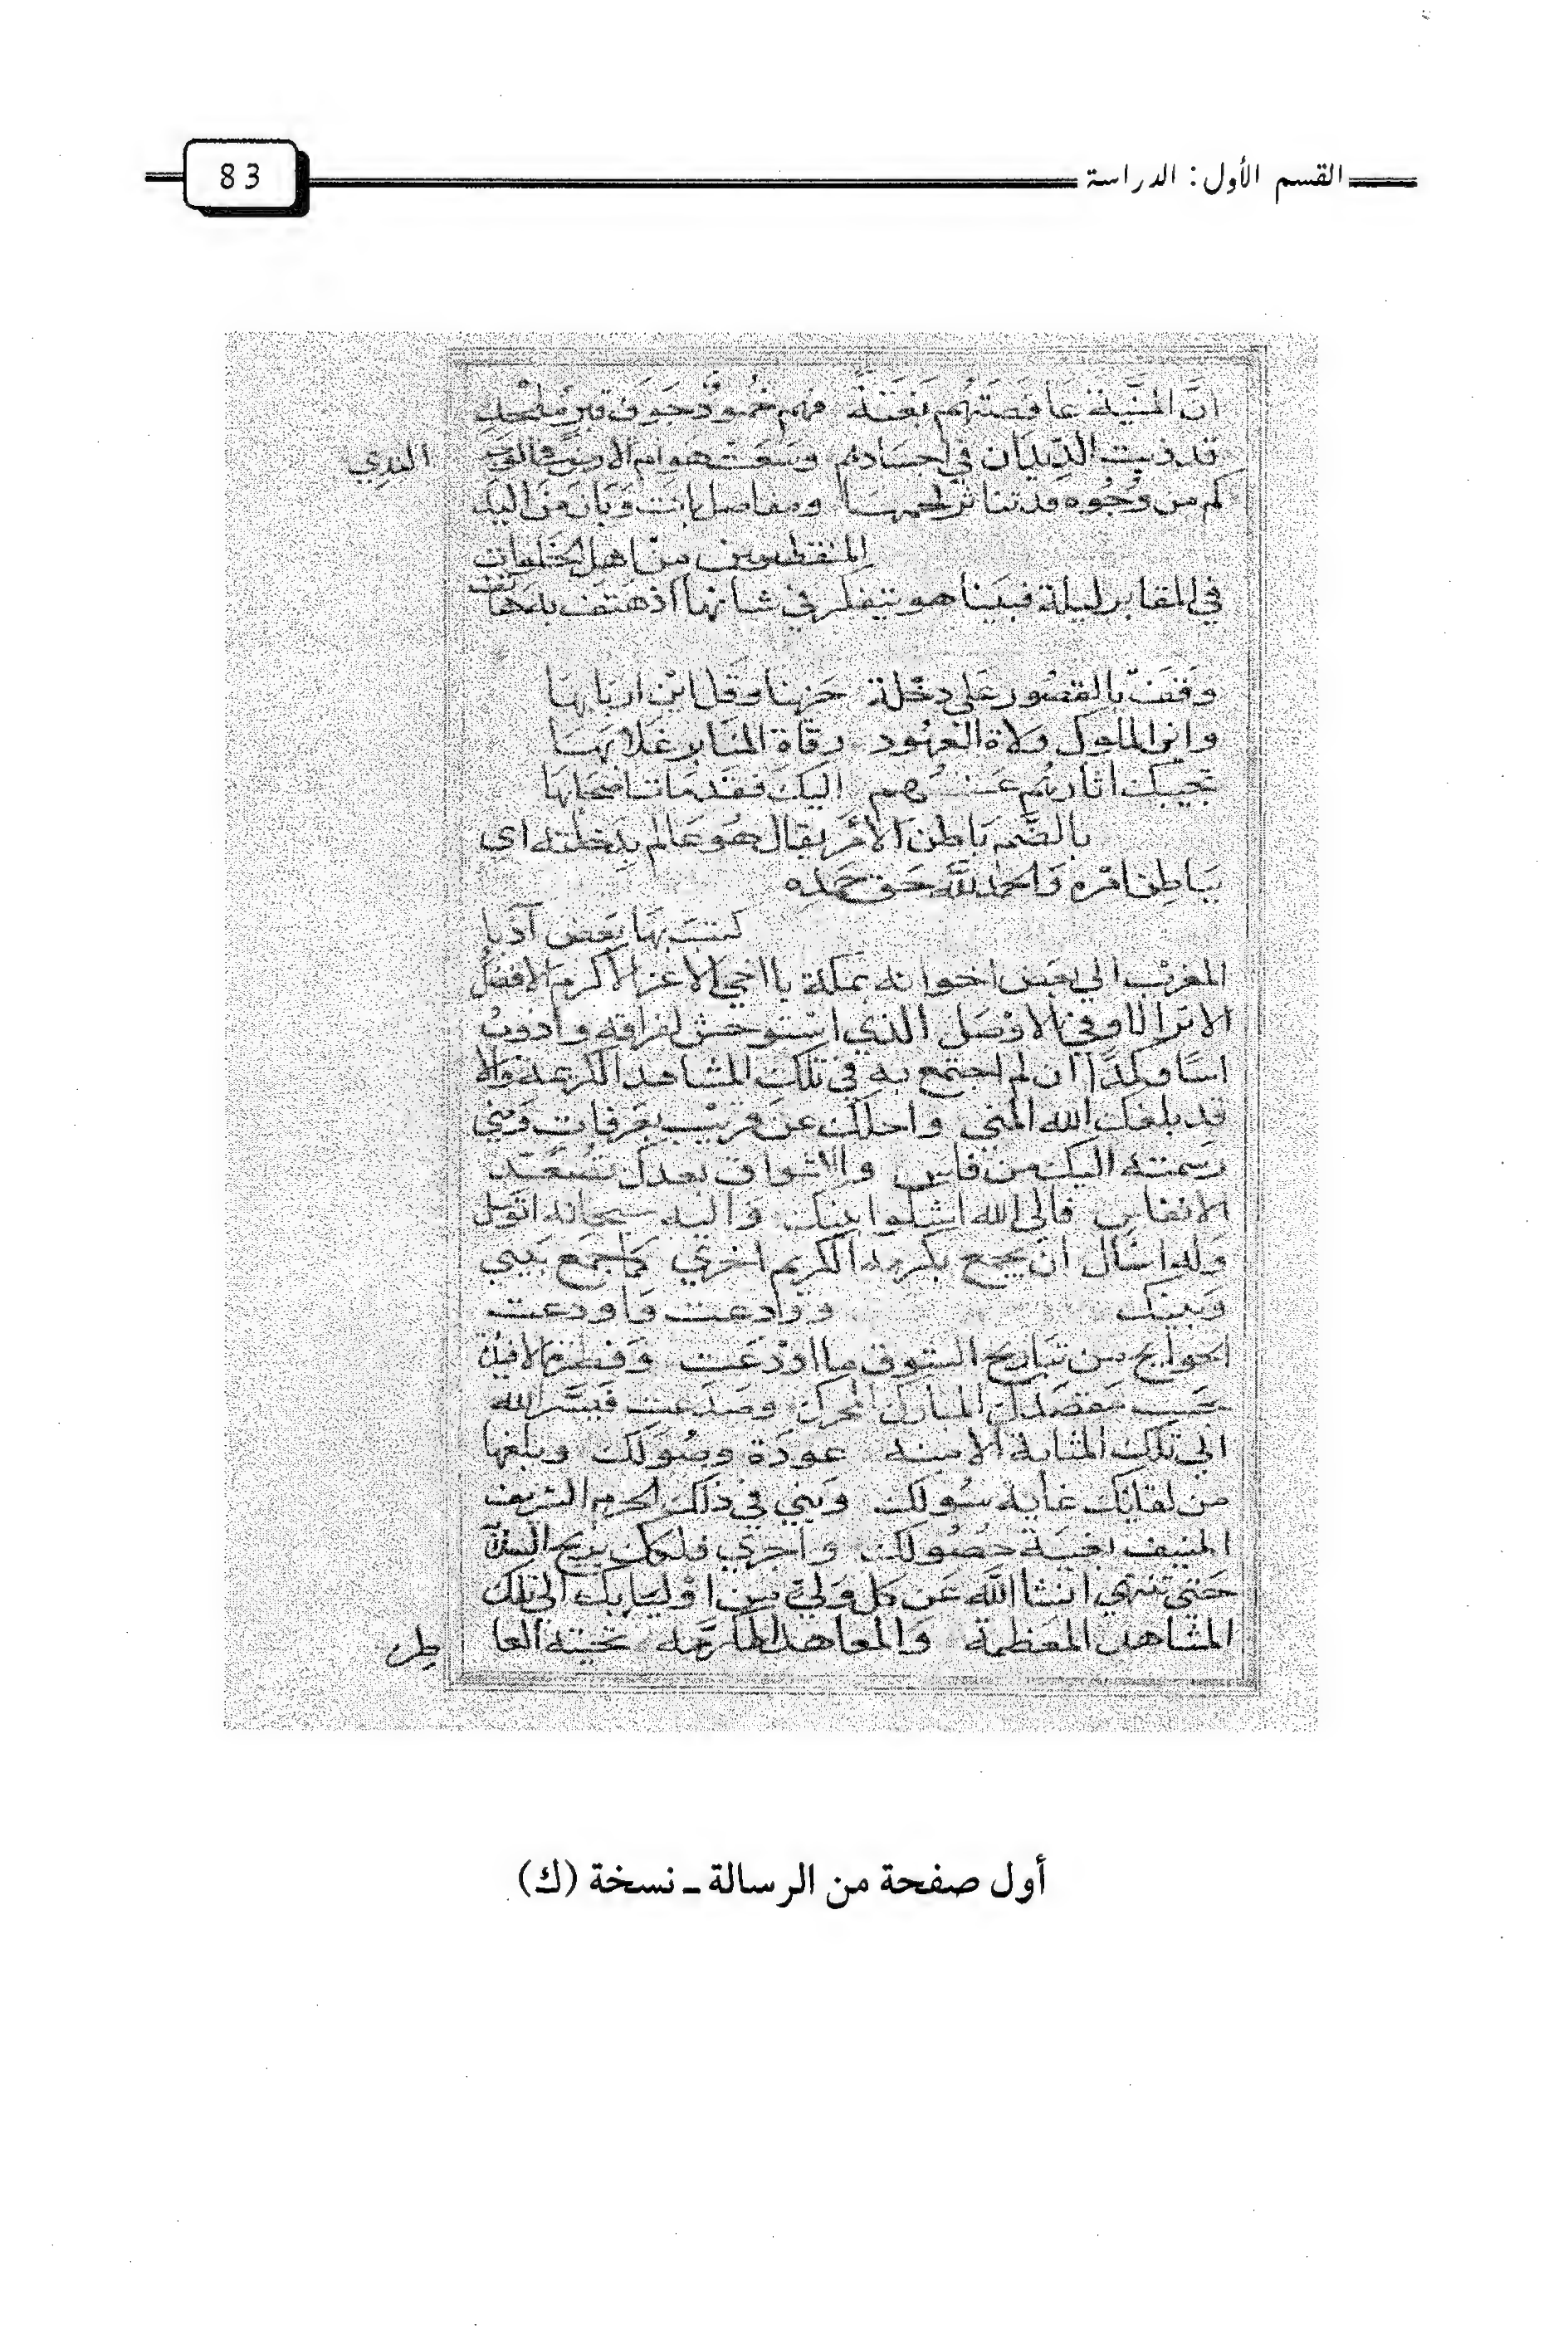 القسم الأول: الدراسة
83
انَّ المنيَّة غافصَتهُم بَغتَةً فهم خُمودٌ جَوفَ قبرٍ مُلحد
قد دبت الدِّيدَان في أجسَادهم وسَعَت هوام الارض في الثرى الندي
كم من وُجُوه قد تناثر لحمهَا ومفاصل بانت وَبَانَ مَنَ اليَد
المنقطعين من اهل الخلوات
في المقابر ليلة فبَينا هو يتفكر في شانها اذ هتف به هاتف
وقفتَ بالقصُور على دجْلة حَزينا وقل اين اربَابهَا
واين الملوك ولاة العهُود رقاة المنَابر غلابهَا
تجيبك اثارهُم عَنهُم اليكَ فقد مَات اصحَابهَا
بالضَّم بَاطن الأمْر يقال هُوَ عَالم بدخلته اي
ببَاطِن امْره وَالحمد للَّه حَق حمده
كتبَ بهَا بَعض أدبا
المغرْب الي بعَض اخوانه بمَكة يا اخي الاعز الاكرم الافضل
الابر الاوفى الاوصَل الذي استوحش لفراقه واذوبُ
اسًا وكمدًا ان لم اجتمع به في تلك المشاهد الكريمة والا
قد بلغك الله المني واحلك عن قريْب بعَرفات وَمني
رسمته اليك من فاس والاشواق بعدك تسْعَّد
الانفاس فالى الله اشكوا بينك وَاليه سبحانه اتوسل
وَله اسْال ان يجمع بكرمه الكريم اخري كما جمَع بَيني
وَبينك ووادعت وَاودعت
الجوانح من تبَاريح الشوق ما اوْدَعَت
بمقصَدك المبارك وصَدَعت فيَسَّر الله
الي تلك المثابة الامنه عودَة وصُولك وبلغها
من لقائك غاية سُولك وَبني في ذلك الحرم الشريف
المنيف بغيَة حصُولك
حَتى تنتهي انشا اللَّه عَن كل وَليّ من اوْليَايك الي تلك
المشاهد المعَظمة وَالمعَاهد المكرَّمه تحيَته العا
طره
أول صفحة من الرسالة ـ نسخة (ك)